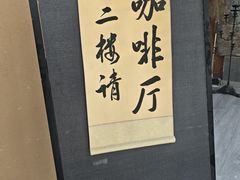 咖啡厅
二楼请